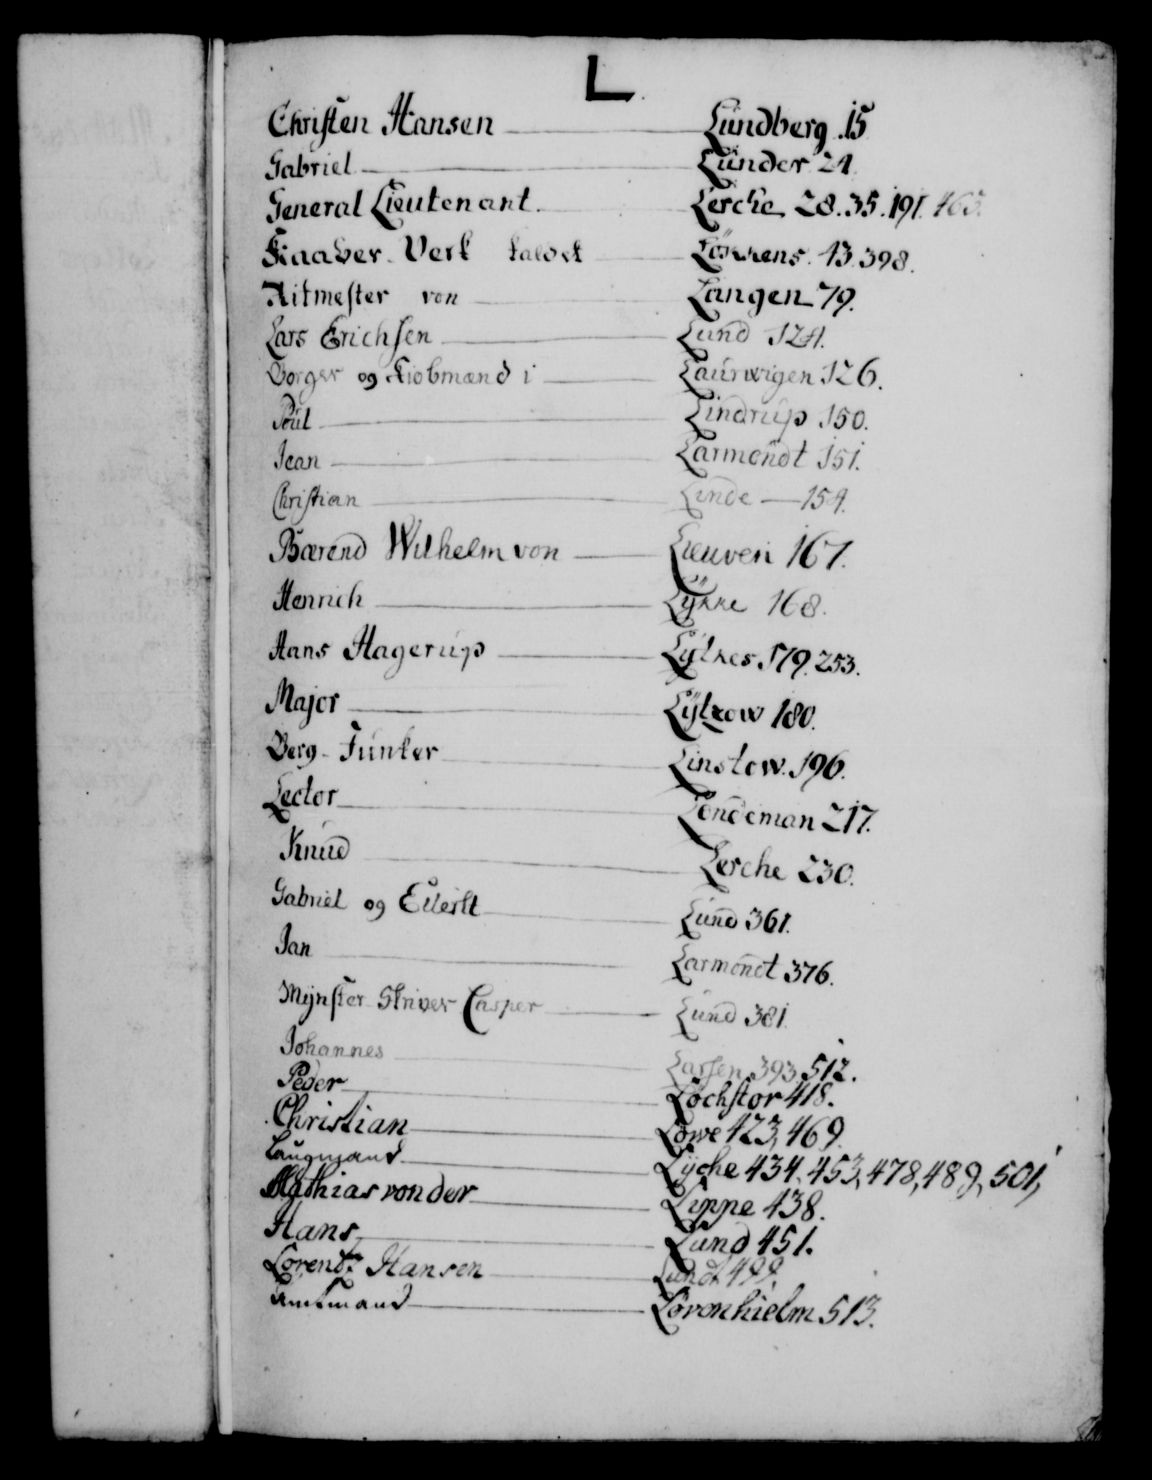 L
Christen Hansen Lundberg 15
Gabriel Lunder 24
General Lieutenant Lerche 28. 35. 191. 463.
Kaaber Verk kaldet Løkkens 13. 398.
Ritmester von Langen 79.
Lars Erichsen Lund 124.
Borger og Kiobmænd i Laurwigen 126.
Poul Lindrup 150.
Jean Larmondt 151.
Christian Linde 154.
Bærend Wilhelm von Lieuven 167.
Henrich Lÿkke 168.
Hans Hagerup Lÿtkes 179. 253.
Major Lÿtzow 180.
Berg Junker Linstow. 196.
Lector Londeman 217.
Knud Lerche 230.
Gabriel og Eilert Lund 361.
Jan Larmondt 376.
Mÿnster Skriver Casper Lund 381.
Johannes Larsen 393. 512.
Peder Lochstor 418.
Christian Lowe 423, 469.
Laugmand Lÿche 434, 453, 478, 489, 501,
Mathias von der Lippe 438.
Hans Lund 451.
Lorentz Hansen Lundt 499.
Amtmand Lovenhielm 513.